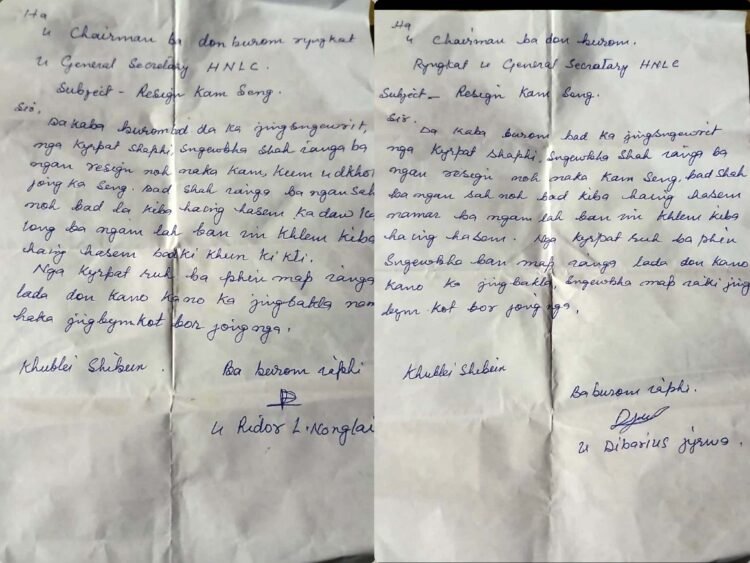 Ha
u Chairman ba donburom ryngkat
u General Secretary HNLC.
Subject - Resign Kam Seng.
Sir.
Da kaba burom bad da ka jingsngewrit,
nga kyrpat shaphi, sngewbha shah ianga ba
ngan resign noh naka kam, kum u dkhot
jong ka Seng. bad shah ianga ba ngan sah
noh bad la kiba haiing hasem ka daw ka
long ba ngam lah ban im khlem kiba
haiing hasem bad ki khun ki kti.
Nga kyrpat ruh ba phin map ianga
lada don kano kano ka jingbakla nam
haka jingbymkot bor jong nga.
Khublei Shibun.
Ba burom iaphi
u Ridor L. Nonglai
Ha
u Chairman ba don burom.
Ryngkat u General Secratary HNLC
Subject - Resign Kam Seng.
Sir.
Da kaba burom bad ka jingsngewrit
nga kyrpat shaphi. Sngewbha shah ianga ba
ngan resign noh naka kam Seng. bad shah
ba ngan sah noh bad kiba haiing hasem
namar ba ngam lah ban im khlem kiba
ha iing hasem. Nga kyrpat ruh ba phin
sngewbha ban map ianga lada don kano
kano ka jingbakla, sngewbha map iaki jing
bym kot bor jong nga.
Khublei Shibun
Ba burom iaphi.
u Dibarius Jyrwa.